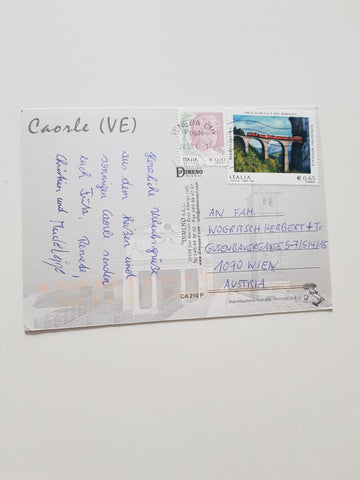 Caorle (VE)
Herzliche Urlaubsgrüsse
aus dem heißen und
sonnigen Caorle senden
euch Fritz, Renate,
Christian und
VENEZIA CMP
ITALIA
€ 0,10
ITALIA
€ 0,65
DIMENO
AN FAM.
WOGRITSCH HERBERT + Tr.
GUSENBAUERGASSE 5-7/5/4/15
1090 WIEN
AUSTRIA
CA 210 P
Riproduzione Vietata - Printed in E.U.